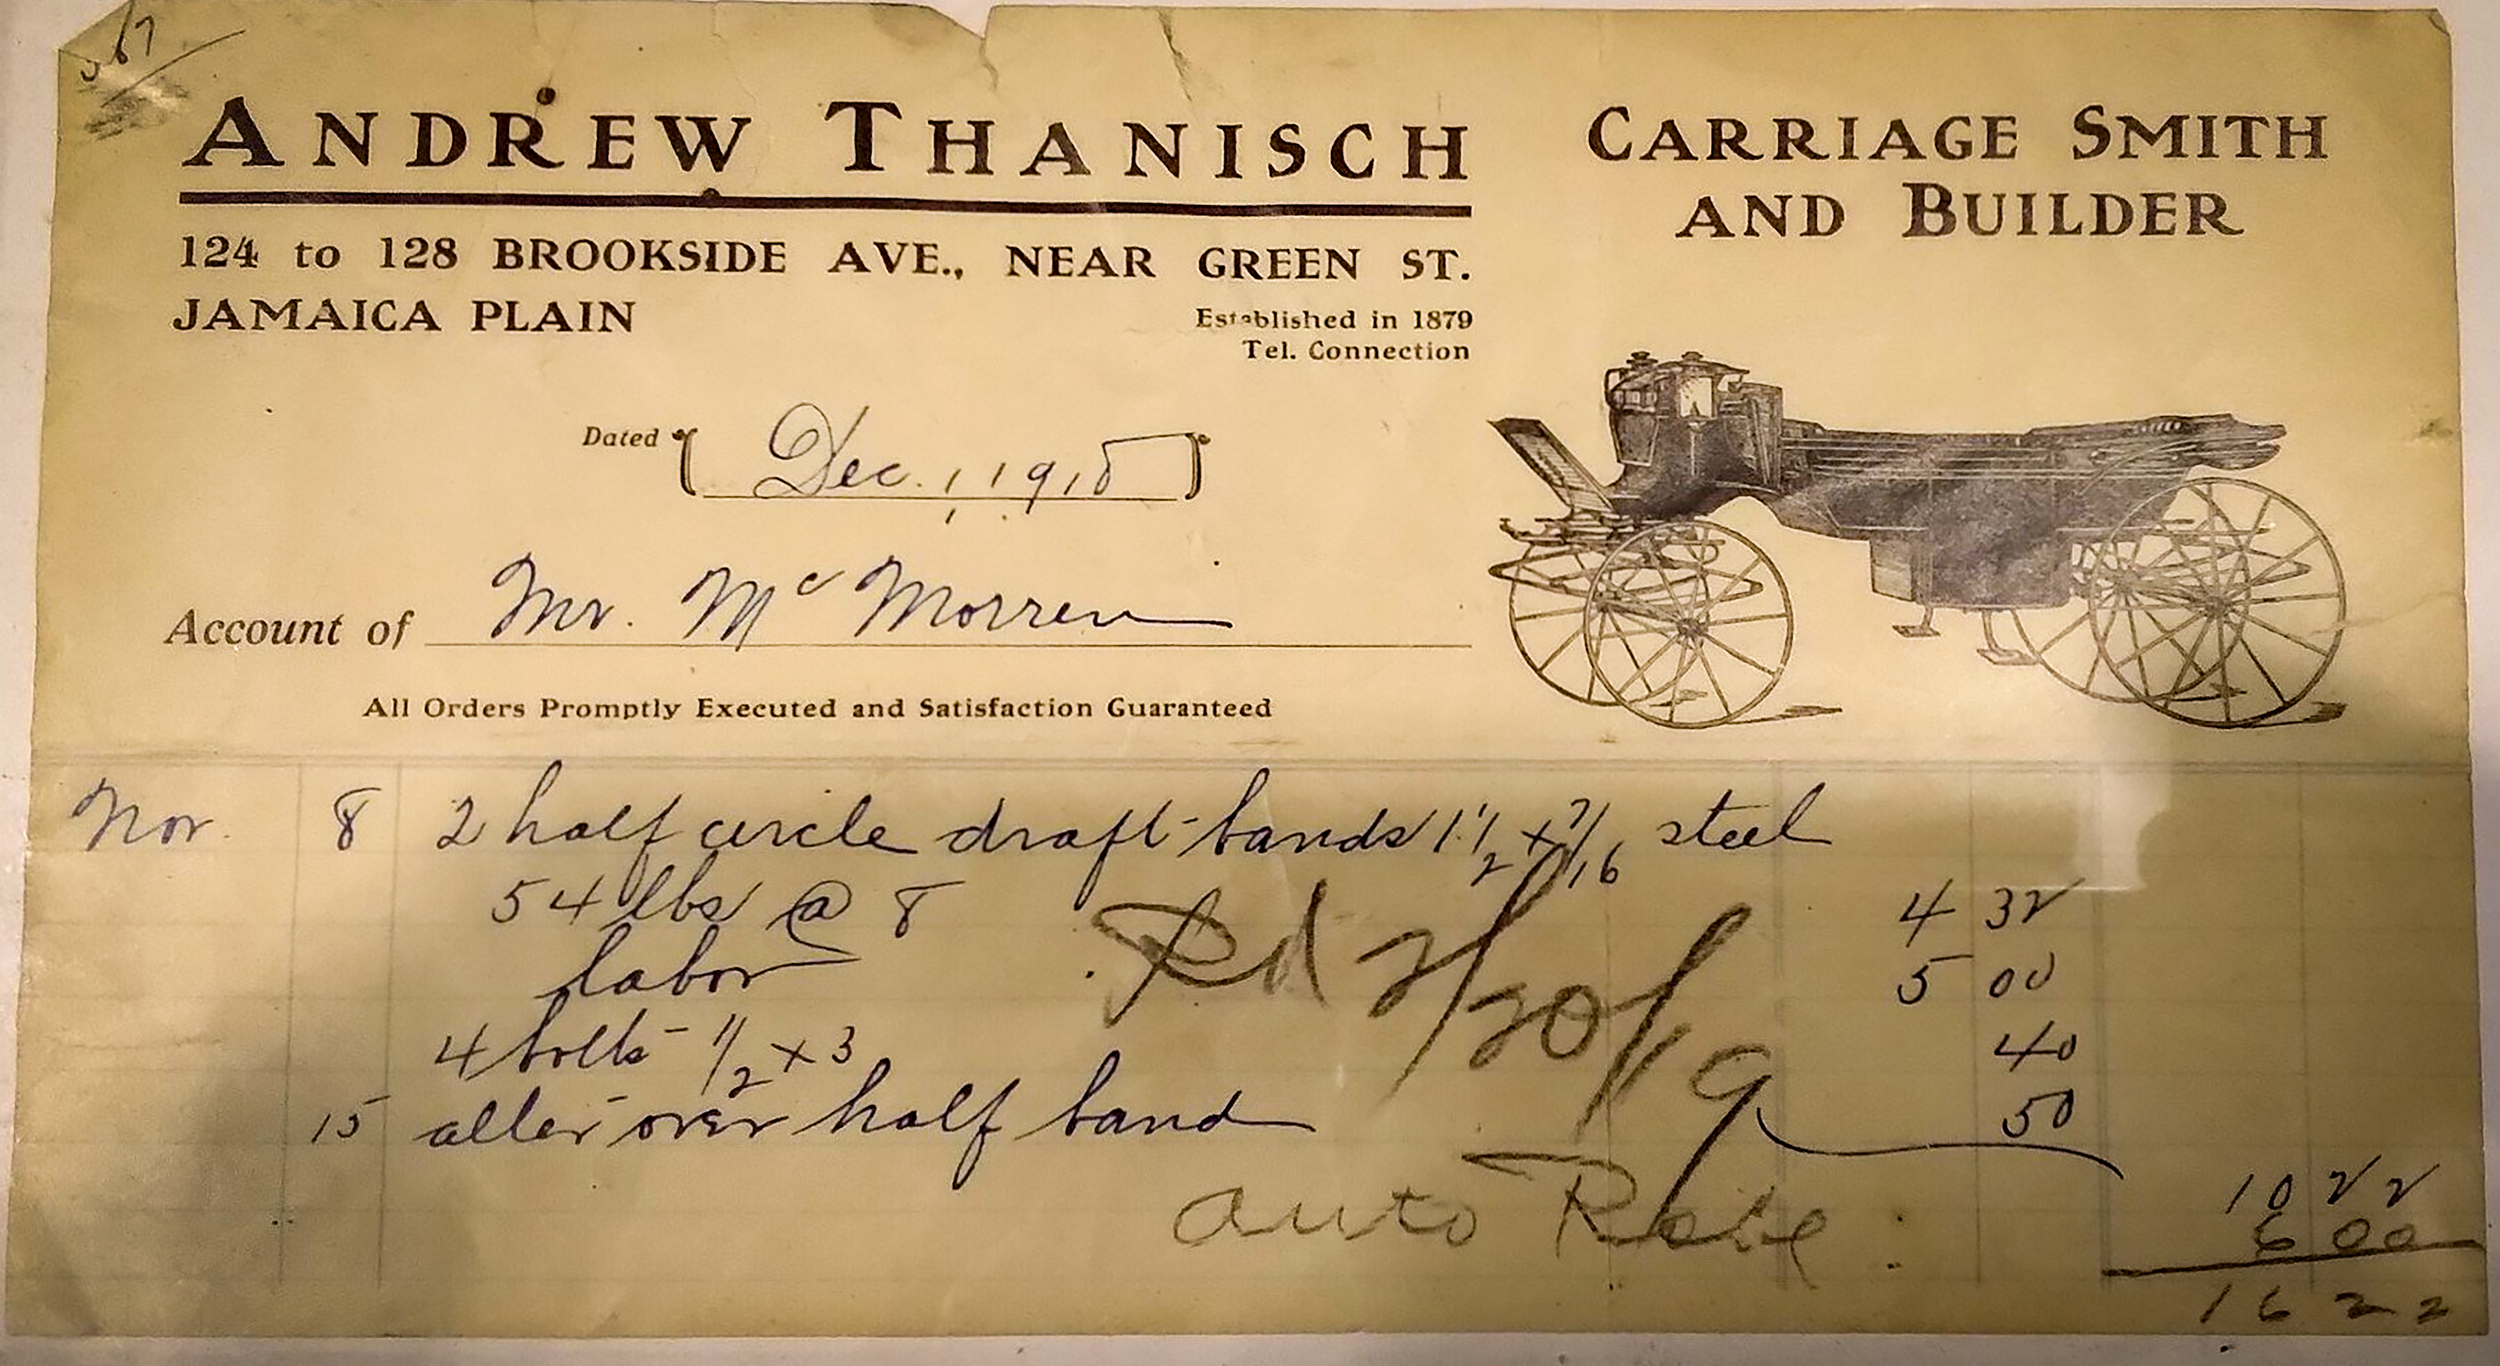 567
ANDREW THANISCH
CARRIAGE SMITH
AND BUILDER
124 to 128 BROOKSIDE AVE., NEAR GREEN ST.
JAMAICA PLAIN
Established in 1879
Tel. Connection
Dated Dec. 1, 1918
Account of Mr. Mc Morren
All Orders Promptly Executed and Satisfaction Guaranteed
Nov. 8 2 half circle draft-bands 1 1/2 x 7/16 steel
54 lbs @ 8 4 32
labor 5 00
4 bolts - 1/2 x 3 40
15 alter over half band 50
10 22
Pd 2/20/19
Auto Robe : 6 00
16 22